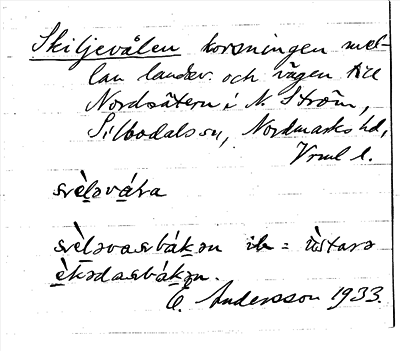 Skiljevålen korsningen mel-
lan landsv. och vägen till
Nordsätern i N. Ström,
Silbodals sn, Nordmarks hd,
Vrml l.
svèləváɬa
svèləvasbákən = ùstarə
E. Andersson 1933.